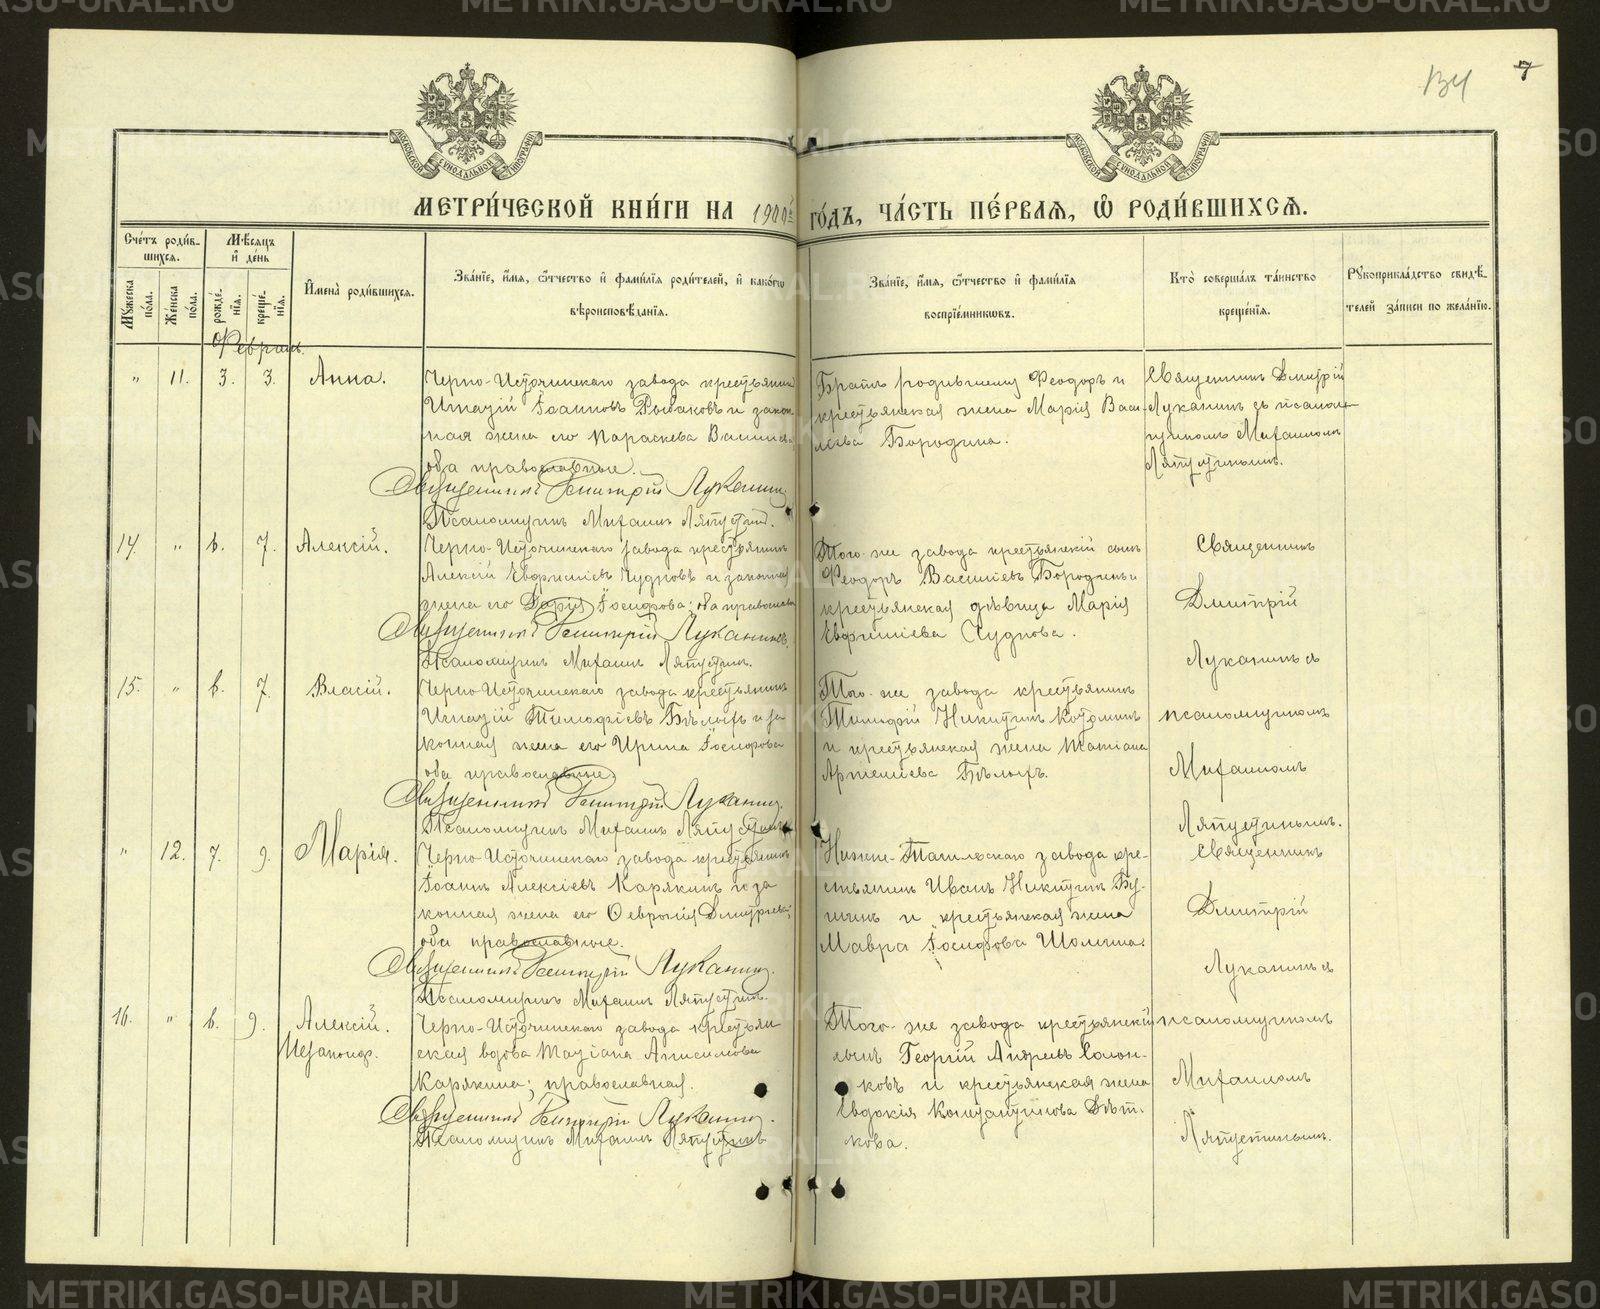 METRIKI.GASO-URAL.RU
134
7
МОСКОВСКОЙ СѴНОДАЛЬНОЙ ТИПОГРАФІИ
МОСКОВСКОЙ СѴНОДАЛЬНОЙ ТИПОГРАФІИ
МЕТРИ́ЧЕСКОЙ КНИ́ГИ НА 1900й ГО́ДЪ, ЧА́СТЬ ПЕ́РВАѦ, Ѡ҆ РОДИ́ВШИХСѦ.
Сче́тъ роди́в-
шихсѧ.
Мꙋ́жеска по́ла.
Же́нска по́ла.
Мѣ́сѧцъ
и҆ де́нь
рожде́-
нїѧ.
креще́-
нїѧ.
И҆мена̀ роди́вшихсѧ.
Зва́нїе, и҆́мѧ, ѻ҆́тчество и҆ фами́лїѧ роди́телей, и҆ како́гѡ
вѣроисповѣ́данїѧ.
Зва́нїе, и҆́мѧ, ѻ҆́тчество и҆ фами́лїѧ
воспрїе́мникѡвъ.
Кто̀ соверша́лъ та́инство
креще́нїѧ.
Рꙋкоприкла́дство свидѣ́-
телей за́писи по жела́нїю.
Февраль.
" 11. 3. 3. Анна.
Черно-Источинскаго завода крестьянинъ
Игнатій Іоанновъ Рыбаковъ и закон-
ная жена его Параскева Васильева
оба православные.
Священникъ Димитрій Луканинъ
Псаломщикъ Михаилъ Ляпустинъ.
Братъ родившему Феодоръ и
крестьянская жена Марія Васи-
льева Бородина.
Священникъ Дмитрій
Луканинъ съ псалом-
щикомъ Михаиломъ
Ляпустинымъ.
14. " 6. 7. Алексій.
Черно-Источинскаго завода крестьянинъ
Алексій Евфиміевъ Чудновъ и законная
жена его Дарія Іосифова; оба православные
Священникъ Димитрій Луканинъ
Псаломщикъ Михаилъ Ляпустинъ.
Того-же завода крестьянскій сынъ
Феодоръ Василіевъ Бородинъ и
крестьянская дѣвица Марія
Евфиміева Чуднова.
Священникъ
Дмитрій
Луканинъ съ
15. " 6. 7. Власій.
Черно-Источинскаго завода крестьянинъ
Игнатій Тимофіевъ Бѣлыхъ и за
конная жена его Ирина Іосифова
оба православные.
Священникъ Димитрій Луканинъ.
Псаломщикъ Михаилъ Ляпустинъ
Того-же завода крестьянинъ
Тимофій Никитинъ
и крестьянская жена Татіана
Артеміева Бѣлыхъ.
псаломщикомъ
Михаиломъ
Ляпустинымъ.
" 12. 7. 9. Марія.
Черно-Источинскаго завода крестьянинъ
Іоаннъ Алексіевъ Карякинъ и за
конная жена его Ѳевронія Дмитріева;
оба православные.
Священникъ Димитрій Луканинъ.
Псаломщикъ Михаилъ Ляпустинъ.
Нижне-Тагильскаго завода кре-
стьянинъ Иванъ Никитинъ
и крестьянская жена
Мавра Іосифова
Священникъ
Дмитрій
Луканинъ съ
16. " 6. 9. Алексій.
Незаконор.
Черно-Источинскаго завода крестьян
ская вдова Татіана Анисимова
Карякина; православная.
Священникъ Димитрій Луканинъ.
Псаломщикъ Михаилъ Ляпустинъ
Того-же завода крестьянскій
сынъ Георгій Андреевъ
и крестьянская жена
Евдокія Константинова
псаломщикомъ
Михаиломъ
Ляпустинымъ.